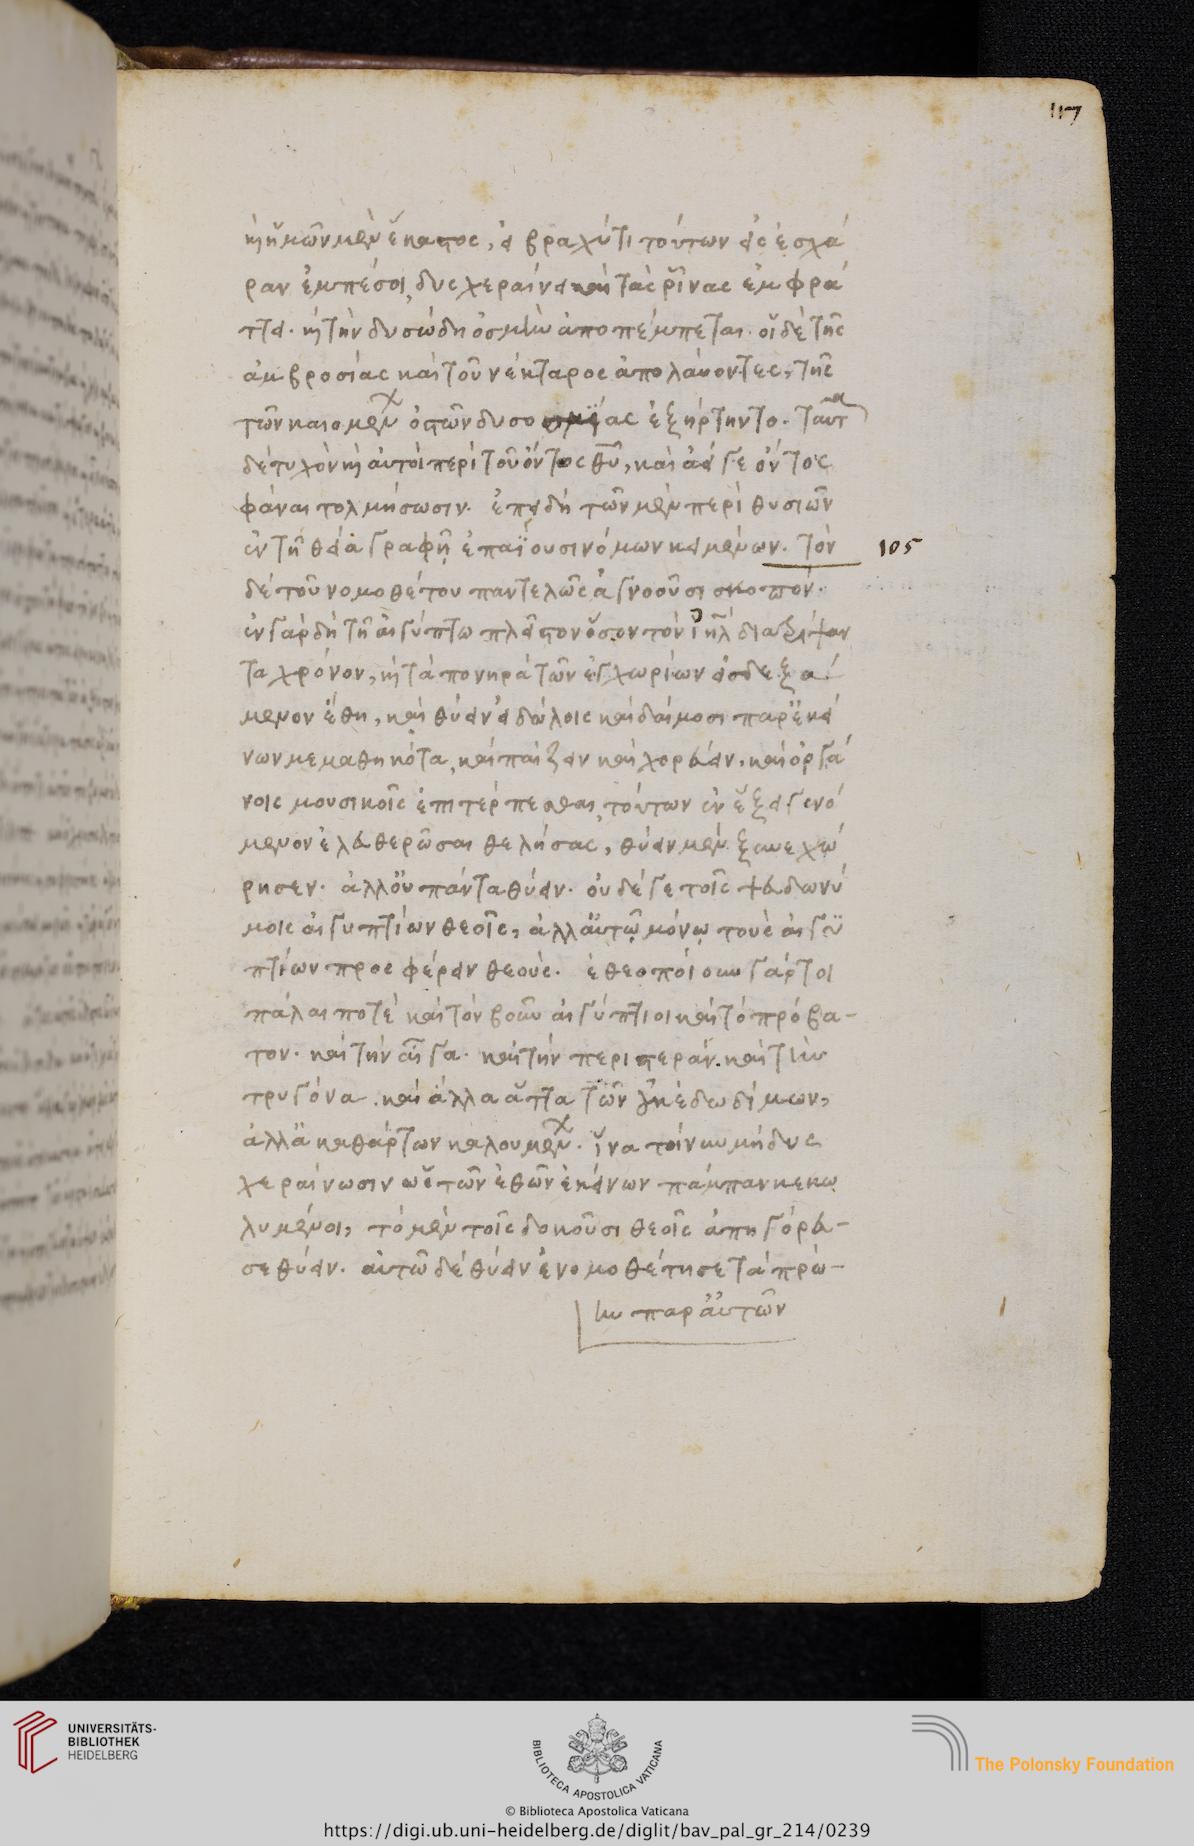 117
καὶ ἡμῶν μὲν ἕκαστος, εἰ βραχύ τι τούτων εἰς ἐσχά
ραν ἐμπέσοι, δυσχεραίνει καὶ τὰς ῥῖνας ἐμφρά
ττει. καὶ τὴν δυσώδη ὀσμὴν ἀποπέμπεται. οἱ δὲ τῆς
ἀμβροσίας καὶ τοῦ νέκταρος ἀπολάυοντες, τῆς
τῶν καιομένων ὀστῶν δυσοσμίας ἐξήρτηντο. ταῦτα
δὲ τυχὸν καὶ αὐτοὶ περὶ τοῦ ὄντος θυ, καὶ ἀεί γε ὄντος
φάναι τολμήσωσιν. ἐπειδὴ τῶν μὲν περὶ θυσιῶν
ἐν τῆ θεία γραφῇ ἐπαΐουσι νόμων κειμένων. τὸν
105
δὲ τοῦ νομοθέτου παντελῶς ἀγνοοῦσι σκοπόν.
ἐν γὰρ δὴ τῆ αἰγύπτω πλεῖστον ὅσον τὸν ιηλ διατρίψαν
τα χρόνον, καὶ τὰ πονηρὰ τῶν ἐγχωρίων εἰσδεξά
μενον ἔθη, καὶ θύειν εἰδώλοις καὶ δαίμοσι παρ' ἐκεί
νων μεμαθηκότα, καὶ παίζειν καὶ χορεύειν, καὶ ὀργά
νοις μουσικοῖς ἐπιτέρπεσθαι, τούτων ἐν ἕξει γενό
μενον ἐλευθερῶσαι θελήσας, θύειν μὲν ξυνεχώ
ρησεν. ἀλλ' οὐ πάντα θύειν. οὐδέ γε τοῖς ψευδωνύ
μοις αἰγυπτίων θεοῖς, ἀλλ' αὐτῷ μόνῳ τοὺς αἰγυ
πτίων προσφέρειν θεούς. ἐθεοποίουν γάρ τοι
πάλαι ποτὲ καὶ τὸν βοῦν αἰγύπτιοι καὶ τὸ πρόβα-
τον. καὶ τὴν αἶγα. καὶ τὴν περιστεράν. καὶ τὴν
τρυγόνα. καὶ ἄλλα ἄττα τῶν ἐδωδίμων,
ἀλλὰ καθάρτων καλουμένων. ἵνα τοίνυν μὴ δυς
χεραίνωσιν ὡς τῶν ἐθῶν ἐκείνων πάμπαν κεκω
λυμένοι, τὸ μὲν τοῖς δοκοῦσι θεοῖς ἀπηγόρευ-
σε θύειν. αὐτῶ δὲ θύειν ἐνομοθέτησε τὰ πρώ-
ην παρ' αὐτῶν
UNIVERSITÄTS-
BIBLIOTHEK
HEIDELBERG
BIBLIOTECA APOSTOLICA VATICANA
The Polonsky Foundation
© Biblioteca Apostolica Vaticana
https://digi.ub.uni-heidelberg.de/diglit/bav_pal_gr_214/0239